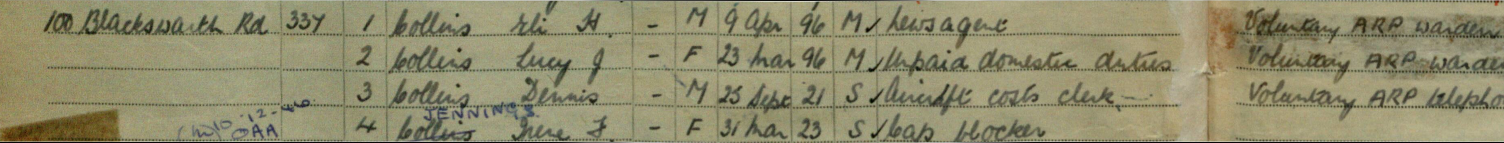 100 Blackswarth Rd 337 1 Collins Eli H. - M 9 Apr 96 M Newsagent Voluntary ARP Warden
2 Collins Lucy J - F 23 Mar 96 M Unpaid domestic duties Voluntary ARP Warden
3 Collins Dennis - M 25 Sept 21 S Aircraft costs clerk Voluntary ARP telepho
JENNINGS
10.12.46
4 Collins Irene F. - F 31 Mar 23 S Cap blocker
OAA